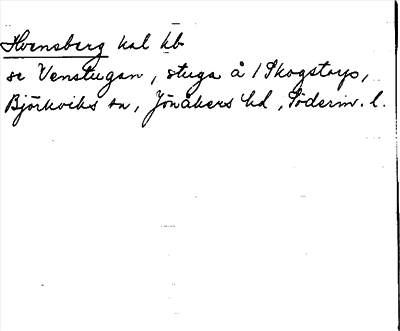 Hvensberg kal kb
se Venstugan, stuga å 1 Skogstorp,
Björkviks sn, Jönåkers hd, Söderm. l.